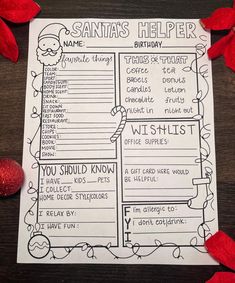 SANTA'S HELPER
NAME: BIRTHDAY
favorite things
COLOR:
TEAM:
SPORT:
SANDWICH:
CANDLE:
HOME SCENT:
DRINK:
SNACK:
STORE:
RESTAURANT:
FAST FOOD:
STORE:
CHIPS:
COOKIES:
BOOK:
MOVIE:
THIS OR THAT
COFFEE TEA
BAGELS DONUTS
CANDLES
chocolate fruity
night in night out
WISHLIST
OFFICE SUPPLIES:
A GIFT CARD HERE WOULD
BE HELPFUL:
YOU SHOULD KNOW
I HAVE KIDS PETS
I COLLECT:
HOME DECOR STYLE/COLORS
I RELAX BY:
I HAVE FUN:
FYI
I'm allergic to:
I don't eat/drink: